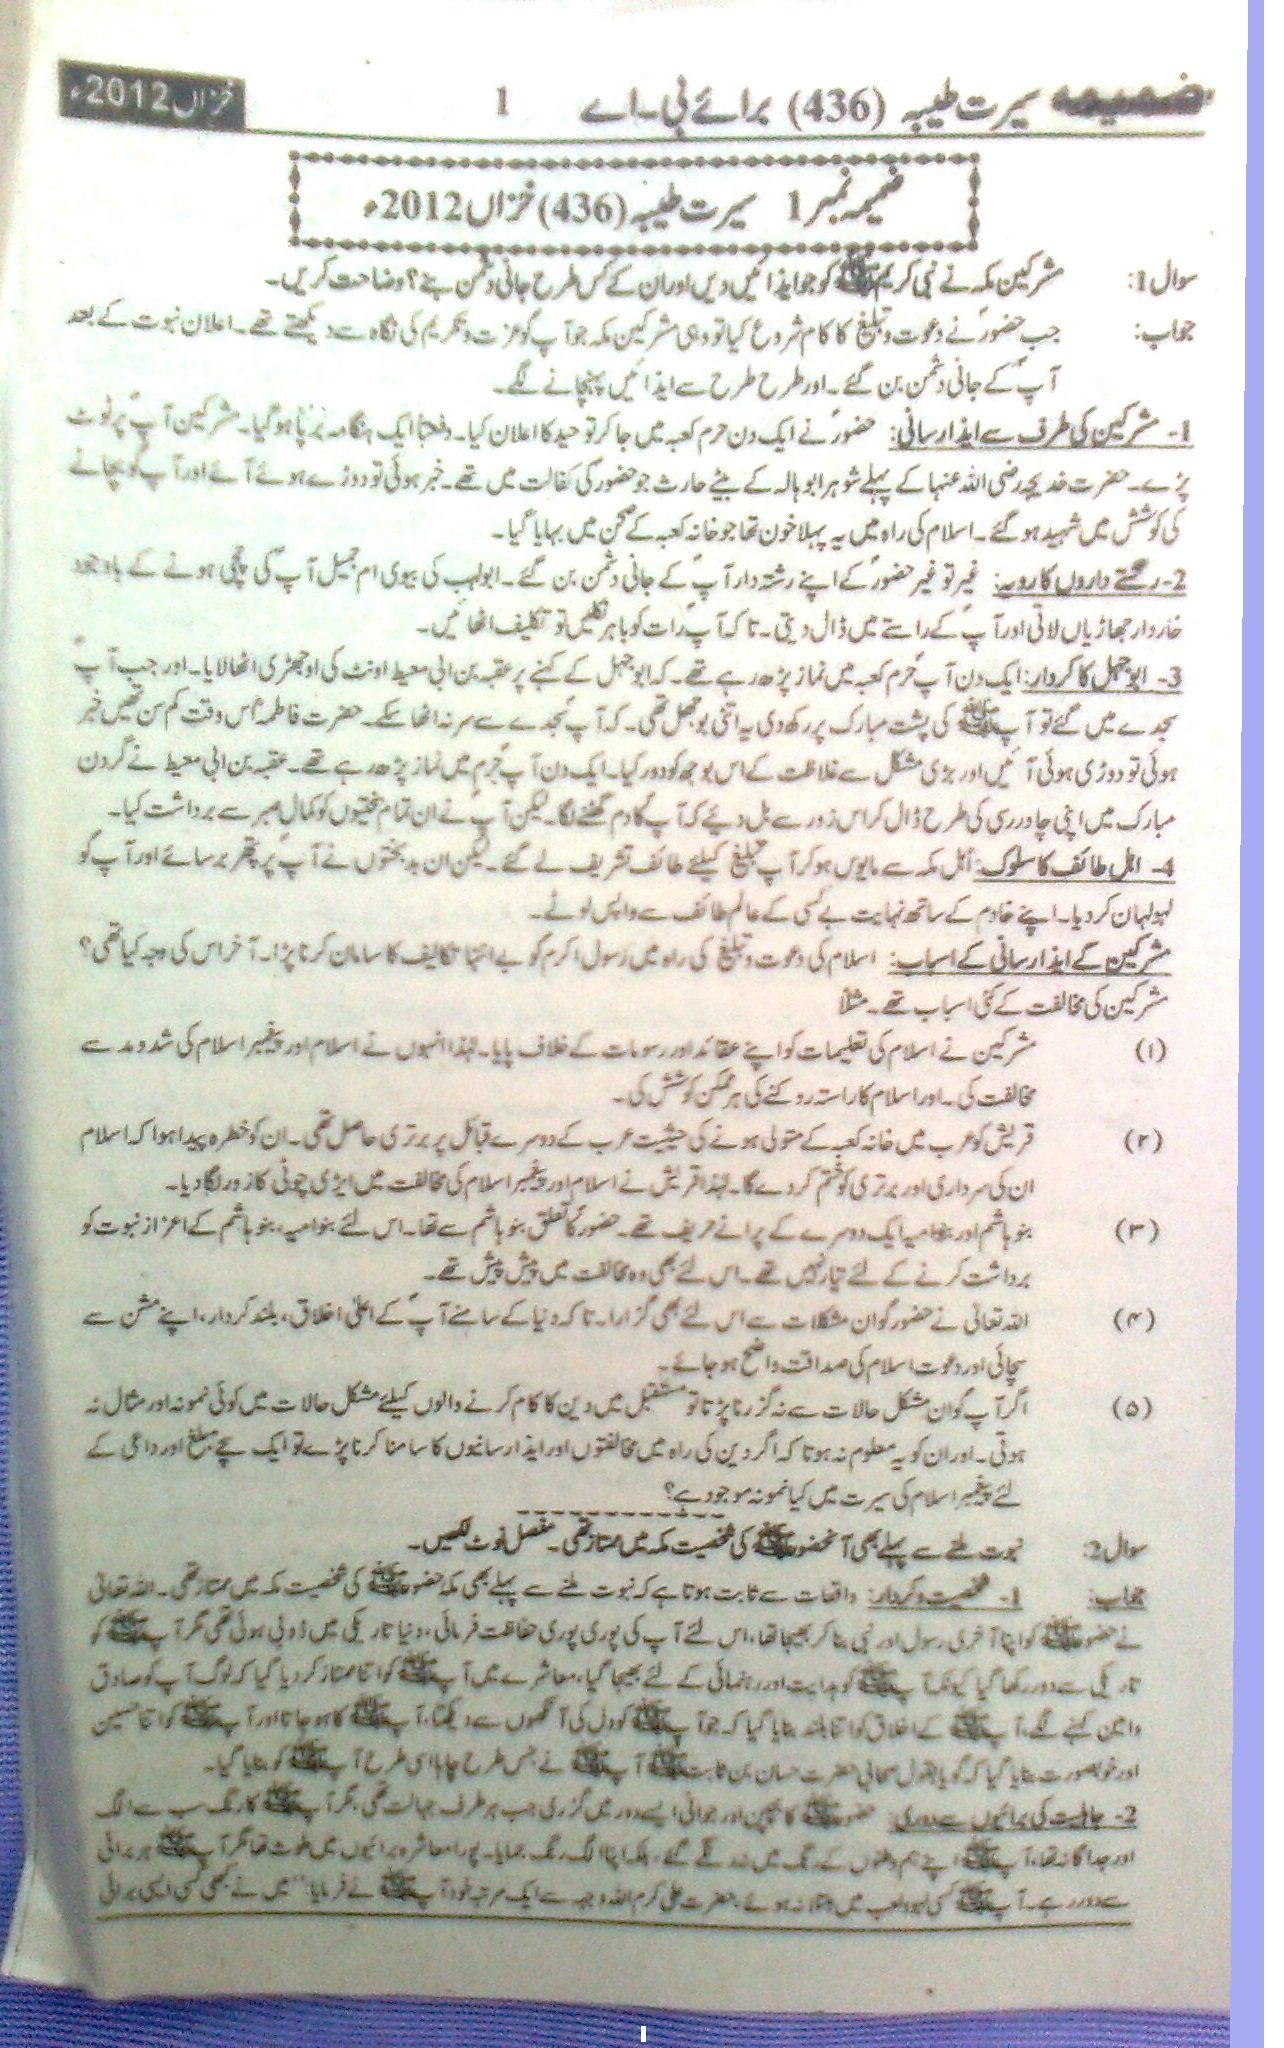 ضمیمہ سیرت طیبہ (436) برائے بی۔اے 1 خزاں 2012ء
ضمیمہ نمبر 1 سیرت طیبہ (436) خزاں 2012ء
سوال 1: مشرکین مکہ نے نبی کریم ﷺ کو جو ایذائیں دیں اور ان کے کس طرح جانی دشمن بنے؟ وضاحت کریں۔
جواب: جب حضورؐ نے دعوت و تبلیغ کا کام شروع کیا تو وہی مشرکین مکہ جو آپ کو عزت و تکریم کی نگاہ سے دیکھتے تھے۔ اعلان نبوت کے بعد
آپؐ کے جانی دشمن بن گئے۔ اور طرح طرح سے ایذائیں پہنچانے لگے۔
1- مشرکین کی طرف سے ایذا رسانی: حضورؐ نے ایک دن حرم کعبہ میں جا کر توحید کا اعلان کیا۔ دفعتاً ایک ہنگامہ برپا ہو گیا۔ مشرکین آپؐ پر ٹوٹ
پڑے۔ حضرت خدیجہ رضی اللہ عنہا کے پہلے شوہر ابو ہالہ کے بیٹے حارث جو حضور کی کفالت میں تھے۔ خبر ہوئی تو دوڑے ہوئے آئے اور آپؐ کو بچانے
کی کوشش میں شہید ہو گئے۔ اسلام کی راہ میں یہ پہلا خون تھا جو خانہ کعبہ کے صحن میں بہایا گیا۔
2- رشتے داروں کا رویہ: غیر تو غیر حضورؐ کے اپنے رشتہ دار آپؐ کے جانی دشمن بن گئے۔ ابولہب کی بیوی ام جمیل آپؐ کی چچی ہونے کے باوجود
خاردار جھاڑیاں لاتی اور آپؐ کے راستے میں ڈال دیتی۔ تاکہ آپؐ رات کو باہر نکلیں تو تکلیف اٹھائیں۔
3- ابو جہل کا کردار: ایک دن آپؐ حرم کعبہ میں نماز پڑھ رہے تھے۔ کہ ابو جہل کے کہنے پر عقبہ بن ابی معیط اونٹ کی اوجھڑی اٹھا لایا۔ اور جب آپؐ
سجدے میں گئے تو آپ ﷺ کی پشت مبارک پر رکھ دی یہ اتنی بوجھل تھی۔ کہ آپؐ سجدے سے سر نہ اٹھا سکے۔ حضرت فاطمہؓ اس وقت کم سن تھیں خبر
ہوئی تو دوڑی ہوئی آئیں اور بڑی مشکل سے غلاظت کے اس بوجھ کو دور کیا۔ ایک دن آپؐ حرم میں نماز پڑھ رہے تھے۔ عقبہ بن ابی معیط نے گردن
مبارک میں اپنی چادر رسی کی طرح ڈال کر اس زور سے بل دیئے کہ آپؐ کا دم گھٹنے لگا۔ لیکن آپؐ نے ان تمام سختیوں کو کمال صبر سے برداشت کیا۔
4- اہل طائف کا سلوک: اہل مکہ سے مایوس ہو کر آپؐ تبلیغ کیلئے طائف تشریف لے گئے۔ لیکن ان بدبختوں نے آپؐ پر پتھر برسائے اور آپؐ کو
لہولہان کر دیا۔ اپنے خادم کے ساتھ نہایت بے کسی کے عالم طائف سے واپس لوٹے۔
مشرکین کے ایذا رسانی کے اسباب: اسلام کی دعوت و تبلیغ کی راہ میں رسول اکرم کو بے انتہا تکالیف کا سامان کرنا پڑا۔ آخر اس کی وجہ کیا تھی؟
مشرکین کی مخالفت کے کئی اسباب تھے۔ مثلاً
(۱) مشرکین نے اسلام کی تعلیمات کو اپنے عقائد اور رسومات کے خلاف پایا۔ لہٰذا انہوں نے اسلام اور پیغمبر اسلام کی شدومد سے
مخالفت کی۔ اور اسلام کا راستہ روکنے کی ہر ممکن کوشش کی۔
(۲) قریش کو عرب میں خانہ کعبہ کے متولی ہونے کی حیثیت عرب کے دوسرے قبائل پر برتری حاصل تھی۔ ان کو خطرہ پیدا ہوا کہ اسلام
ان کی سرداری اور برتری کو ختم کر دے گا۔ لہٰذا قریش نے اسلام اور پیغمبر اسلام کی مخالفت میں ایڑی چوٹی کا زور لگا دیا۔
(۳) بنو ہاشم اور بنو امیہ ایک دوسرے کے پرانے حریف تھے۔ حضورؐ کا تعلق بنو ہاشم سے تھا۔ اس لئے بنو امیہ، بنو ہاشم کے اعزاز نبوت کو
برداشت کرنے کے لئے تیار نہیں تھے۔ اس لئے بھی وہ مخالفت میں پیش پیش تھے۔
(۴) اللہ تعالیٰ نے حضورؐ کو ان مشکلات سے اس لئے بھی گزارا۔ تاکہ دنیا کے سامنے آپؐ کے اعلیٰ اخلاق، بلند کردار، اپنے مشن سے
سچائی اور دعوت اسلام کی صداقت واضح ہو جائے۔
(۵) اگر آپؐ کو ان مشکل حالات سے نہ گزرنا پڑتا تو مستقبل میں دین کا کام کرنے والوں کیلئے مشکل حالات میں کوئی نمونہ اور مثال نہ
ہوتی۔ اور ان کو یہ معلوم نہ ہوتا کہ اگر دین کی راہ میں مخالفتوں اور ایذا رسانیوں کا سامنا کرنا پڑے تو ایک سچے مبلغ اور داعی کے
لئے پیغمبر اسلام کی سیرت میں کیا نمونہ موجود ہے؟
سوال 2: نبوت ملنے سے پہلے بھی آنحضور ﷺ کی شخصیت مکہ میں ممتاز تھی۔ مفصل نوٹ لکھیں۔
جواب: 1- شخصیت و کردار: واقعات سے ثابت ہوتا ہے کہ نبوت ملنے سے پہلے بھی مکہ حضور ﷺ کی شخصیت مکہ میں ممتاز تھی۔ اللہ تعالیٰ
نے حضور ﷺ کو اپنا آخری رسول اور نبی بنا کر بھیجا تھا، اس لئے آپ کی پوری پوری حفاظت فرمائی، دنیا تاریکی میں ڈوبی ہوئی تھی مگر آپ ﷺ کو
تاریکی سے دور رکھا گیا کیونکہ آپ ﷺ کو ہدایت اور رہنمائی کے لئے بھیجا گیا، معاشرے میں آپ ﷺ کو اتنا ممتاز کر دیا گیا کہ لوگ آپ کو صادق
وامین کہنے لگے، آپ ﷺ کے اخلاق کو اتنا بلند بنایا گیا کہ جو آپ ﷺ کو دل کی آنکھوں سے دیکھتا، آپ ﷺ کا ہو جاتا اور آپ ﷺ کو اتنا حسین
اور خوبصورت بنایا گیا کہ گویا بقول صحابی حضرت حسان بن ثابت ﷺ آپ ﷺ نے جس طرح چاہا اسی طرح آپ ﷺ کو بنایا گیا۔
2- جاہلیت کی برائیوں سے دوری: حضور ﷺ کا بچپن اور جوانی ایسے دور میں گزری جب ہر طرف جہالت تھی، مگر آپ ﷺ کا رنگ سب سے الگ
اور جداگانہ تھا، آپ ﷺ اپنے ہم وطنوں کے رنگ میں نہ رنگے گئے، بلکہ اپنا الگ رنگ جمایا۔ پورا معاشرہ برائیوں میں ملوث تھا مگر آپ ﷺ ہر برائی
سے دور رہے۔ آپ ﷺ کسی لہو و لعب میں مبتلا نہ ہوئے، حضرت علی کرم اللہ وجہہ سے ایک مرتبہ خود آپ ﷺ نے فرمایا: "میں نے کبھی کسی ایسی برائی